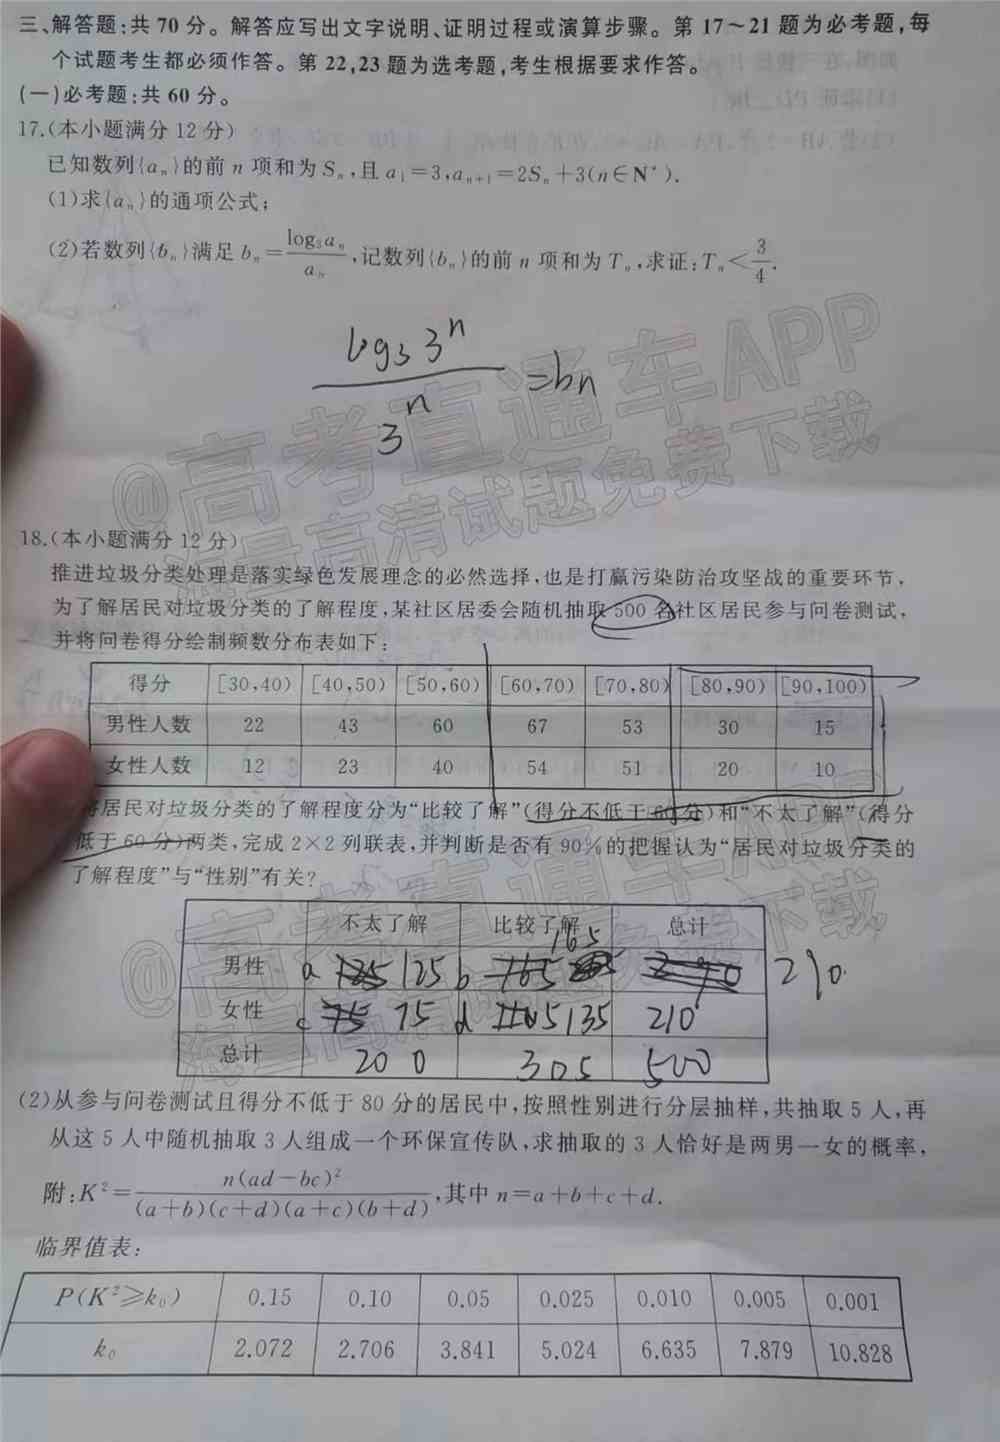 三、解答题:共 70 分。解答应写出文字说明、证明过程或演算步骤。第 17～21 题为必考题,每
个试题考生都必须作答。第 22,23 题为选考题,考生根据要求作答。
(一)必考题:共 60 分。
17.(本小题满分 12 分)
已知数列{aₙ}的前 n 项和为 Sₙ,且 a₁=3,aₙ₊₁=2Sₙ+3(n∈N*).
(1)求{aₙ}的通项公式;
(2)若数列{bₙ}满足 bₙ=log₃aₙ/aₙ,记数列{bₙ}的前 n 项和为 Tₙ,求证:Tₙ<3/4.
log₃3ⁿ/3ⁿ=bn
@高考直通车APP
海量高清试题免费下载
18.(本小题满分 12 分)
推进垃圾分类处理是落实绿色发展理念的必然选择,也是打赢污染防治攻坚战的重要环节,
为了解居民对垃圾分类的了解程度,某社区居委会随机抽取 500 名社区居民参与问卷测试,
并将问卷得分绘制频数分布表如下:
得分 [30,40) [40,50) [50,60) [60,70) [70,80) [80,90) [90,100)
男性人数 22 43 60 67 53 30 15
女性人数 12 23 40 54 51 20 10
将居民对垃圾分类的了解程度分为“比较了解”(得分不低于 60 分)和“不太了解”(得分
低于 60 分)两类,完成 2×2 列联表,并判断是否有 90%的把握认为“居民对垃圾分类的
了解程度”与“性别”有关?
不太了解 比较了解 总计
男性 a 125 b 165 290
女性 c 75 d 135 210
总计 200 305 500
@高考直通车APP
海量高清试题免费下载
(2)从参与问卷测试且得分不低于 80 分的居民中,按照性别进行分层抽样,共抽取 5 人,再
从这 5 人中随机抽取 3 人组成一个环保宣传队,求抽取的 3 人恰好是两男一女的概率,
附:K²=n(ad-bc)²/(a+b)(c+d)(a+c)(b+d),其中 n=a+b+c+d.
临界值表:
P(K²≥k₀) 0.15 0.10 0.05 0.025 0.010 0.005 0.001
k₀ 2.072 2.706 3.841 5.024 6.635 7.879 10.828